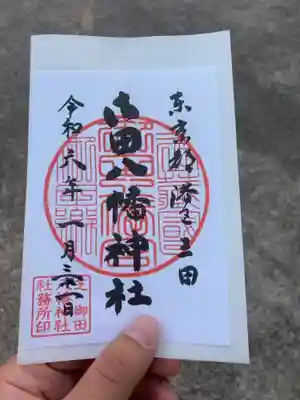 東京都港区三田
御田八幡神社
令和六年一月日
御田
神社
社務所印